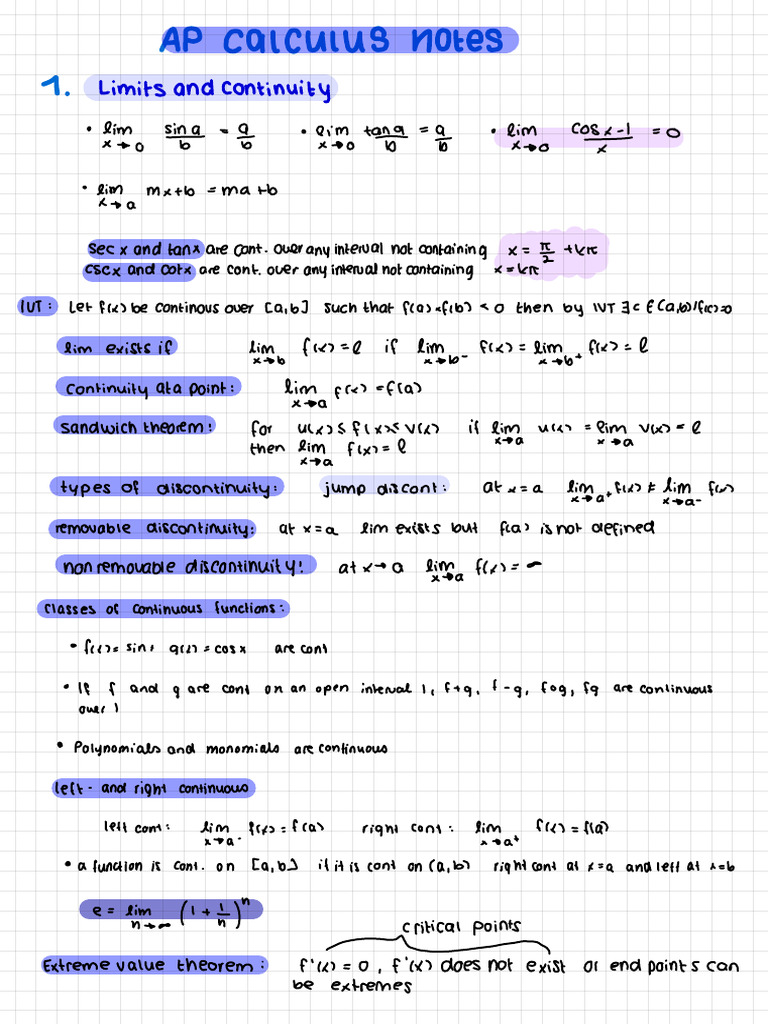 AP Calculus notes
1. Limits and Continuity
• lim x→0 sin a / b = a / b • lim x→0 tan a / b = a / b • lim x→0 cos x - 1 / x = 0
• lim x→a mx+b = ma+b
sec x and tan x are cont. over any interval not containing x = π/2 + kπ
csc x and cot x are cont. over any interval not containing x = kπ
IVT: Let f(x) be continous over [a,b] such that f(a)×f(b) < 0 then by IVT ∃c ∈ (a,b) / f(c)=0
lim exists if lim x→b f(x) = l if lim x→b- f(x) = lim x→b+ f(x) = l
Continuity at a point: lim x→a f(x) = f(a)
Sandwich theorem: for u(x) ≤ f(x) ≤ v(x) if lim x→a u(x) = lim x→a v(x) = l
then lim x→a f(x) = l
types of discontinuity: jump discont: at x = a lim x→a+ f(x) ≠ lim x→a- f(x)
removable discontinuity: at x = a lim exists but f(a) is not defined
non removable discontinuity: at x→a lim x→a f(x) = ∞
Classes of continuous functions:
• f(x) = sin x g(x) = cos x are cont
• If f and g are cont on an open interval I, f+g, f-g, fog, fg are continuous
over I
• Polynomials and monomials are continuous
left- and right continuous
left cont: lim x→a- f(x) = f(a) right cont: lim x→a+ f(x) = f(a)
• a function is cont. on [a,b] if it is cont on (a,b) right cont at x=a and left at x=b
e = lim n→∞ (1 + 1/n)^n
critical points
Extreme value theorem: f'(x) = 0, f'(x) does not exist or end points can
be extremes